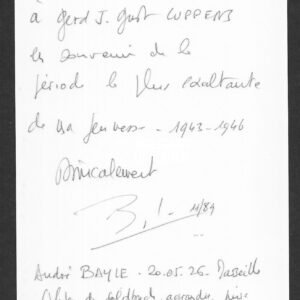 à Gerd J. Gust CUPPENS
en souvenir de la
période la plus exaltante
de ma jeunesse - 1943-1946
Amicalement
11/89
André BAYLE - 20.05.26 - Marseille